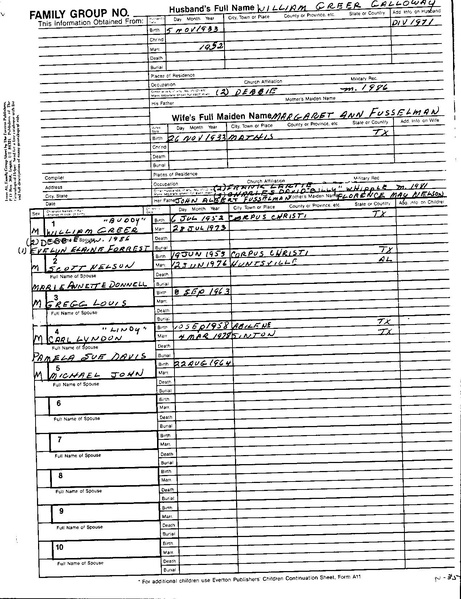 FAMILY GROUP NO.
This Information Obtained From:
Husband's Full Name WILLIAM GREER CALLOWAY
Day Month Year City, Town or Place County or Province, etc. State or Country Add. Info. on Husband
Birth 5 NOV 1933 DIV 1971
Chr'nd
Marr. 1952
Death
Burial
Places of Residence
Occupation Church Affiliation Military Rec.
(2) DEBBIE m. 1986
His Father Mother's Maiden Name
Wife's Full Maiden Name MARGARET ANN FUSSELMAN
Day Month Year City, Town or Place County or Province, etc. State or Country Add. Info. on Wife
Birth 26 NOV 1933 MATHIS TX
Chr'nd
Death
Burial
Compiler Places of Residence
Address Occupation Church Affiliation Military Rec.
City, State WHIPPLE m. 1981
Date Her Father JOHN ALBERT FUSSELMAN Mother's Maiden Name FLORENCE MAY NELSON
Sex Day Month Year City, Town or Place County or Province, etc. State or Country Add. Info. on Children
1 "BUDDY" Birth 6 JUL 1952 CORPUS CHRISTI TX
M WILLIAM GREER Marr. 28 JUL 1973
(2) DEBBIE m. 1986 Death
(1) EVELYN ELAINE FORREST Burial
2 Birth 19 JUN 1955 CORPUS CHRISTI TX
M SCOTT NELSON Marr. 23 JUN 1976 HUNTSVILLE AL
Full Name of Spouse Death
MARIE ANNETTE DONNELL Burial
3 Birth 8 SEP 1963
M GREGG LOUIS Marr.
Full Name of Spouse Death
Burial
4 "LINDY" Birth 10 SEP 1958 ABILENE TX
M CARL LYNDON Marr. 4 MAR 1978 SINTON TX
Full Name of Spouse Death
PAMELA SUE DAVIS Burial
5 Birth 22 AUG 1964
M MICHAEL JOHN Marr.
Full Name of Spouse Death
Burial
6 Birth
Marr.
Full Name of Spouse Death
Burial
7 Birth
Marr.
Full Name of Spouse Death
Burial
8 Birth
Marr.
Full Name of Spouse Death
Burial
9 Birth
Marr.
Full Name of Spouse Death
Burial
10 Birth
Marr.
Full Name of Spouse Death
Burial
* For additional children use Everton Publishers' Children Continuation Sheet, Form A11